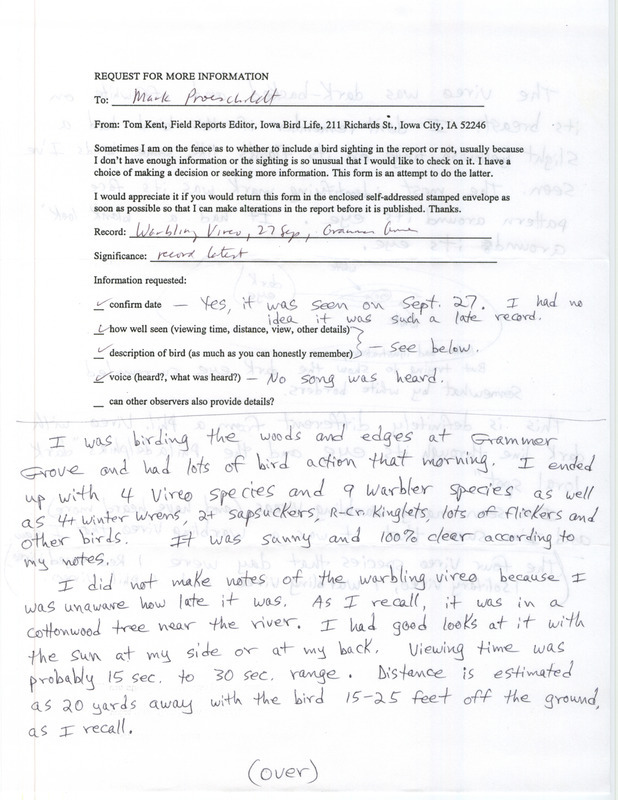 REQUEST FOR MORE INFORMATION
To: Mark Proescholdt
From: Tom Kent, Field Reports Editor, Iowa Bird Life, 211 Richards St., Iowa City, IA 52246
Sometimes I am on the fence as to whether to include a bird sighting in the report or not, usually because
I don't have enough information or the sighting is so unusual that I would like to check on it. I have a
choice of making a decision or seeking more information. This form is an attempt to do the latter.
I would appreciate it if you would return this form in the enclosed self-addressed stamped envelope as
soon as possible so that I can make alterations in the report before it is published. Thanks.
Record: Warbling Vireo, 27 Sep, Grammer Grove
Significance: record latest
Information requested:
✓ confirm date — Yes, it was seen on Sept. 27. I had no
idea it was such a late record.
✓ how well seen (viewing time, distance, view, other details)
✓ description of bird (as much as you can honestly remember) — see below.
✓ voice (heard?, what was heard?) — No song was heard.
__ can other observers also provide details?
I was birding the woods and edges at Grammer
Grove and had lots of bird action that morning. I ended
up with 4 Vireo species and 9 Warbler species as well
as 4+ Winter Wrens, 2+ Sapsuckers, R-Cr. Kinglets, lots of flickers and
other birds. It was sunny and 100% clear according to
my notes.
I did not make notes of the warbling vireo because I
was unaware how late it was. As I recall, it was in a
cottonwood tree near the river. I had good looks at it with
the sun at my side or at my back. Viewing time was
probably 15 sec. to 30 sec. range. Distance is estimated
as 20 yards away with the bird 15-25 feet off the ground,
as I recall.
(over)